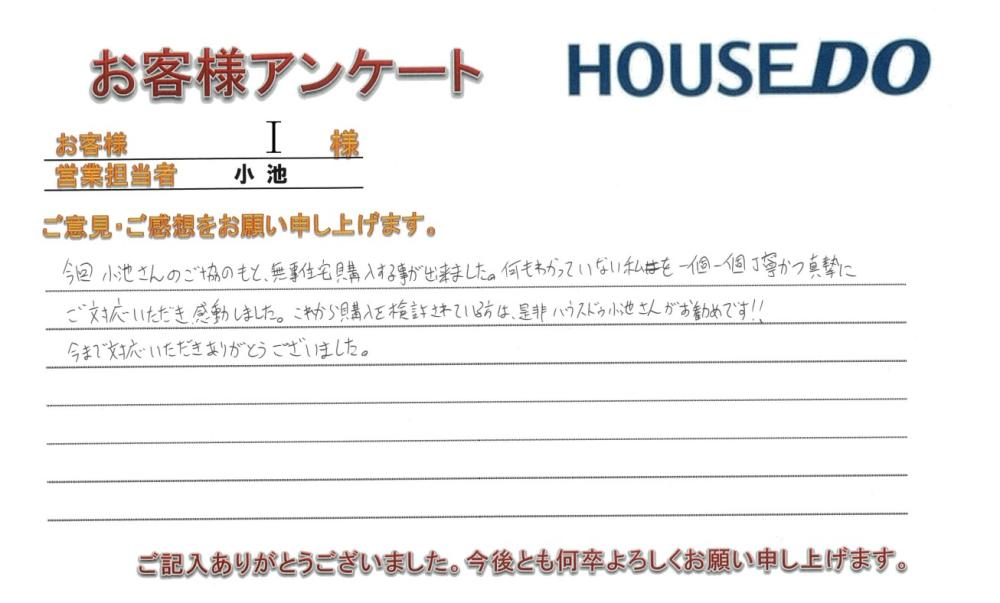 お客様アンケート HOUSE DO
お客様 I 様
営業担当者 小池
ご意見・ご感想をお願い申し上げます。
今回 小池さんのご協のもと、無事住宅購入する事が出来ました。何もわかっていない私を一個一個丁寧かつ真摯に
ご対応いただき感動しました。これから購入を検討されている方は、是非ハウスドゥ小池さんがお勧めです!!
今まで対応いただきありがとうございました。
ご記入ありがとうございました。今後とも何卒よろしくお願い申し上げます。